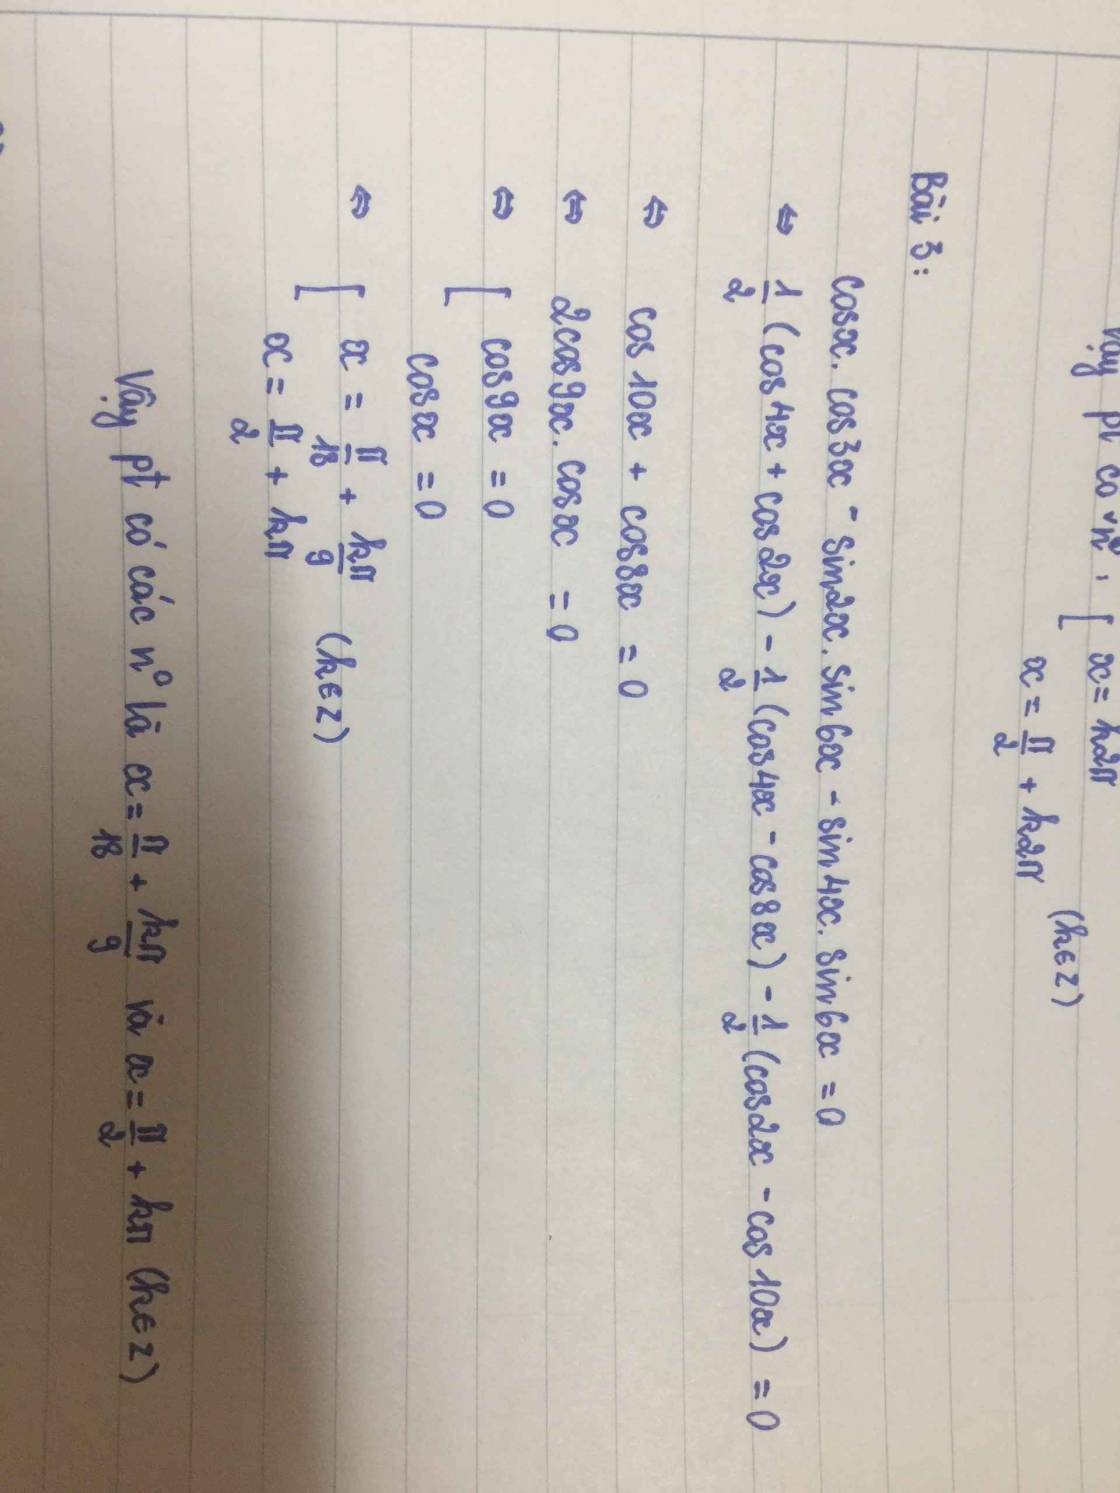 Vậy pt có nº : [ x = k2π
x = π/2 + k2π (k∈Z)
Bài 3:
cosx. cos3x - sin2x. sin6x - sin4x. sin6x = 0
⇔ 1/2 (cos4x + cos2x) - 1/2 (cos4x - cos8x) - 1/2 (cos2x - cos10x) = 0
⇔ cos10x + cos8x = 0
⇔ 2cos9x. cosx = 0
⇔ [ cos9x = 0
cosx = 0
⇔ [ x = π/18 + kπ/9 (k∈Z)
x = π/2 + kπ
Vậy pt có các nº là x = π/18 + kπ/9 và x = π/2 + kπ (k∈Z)